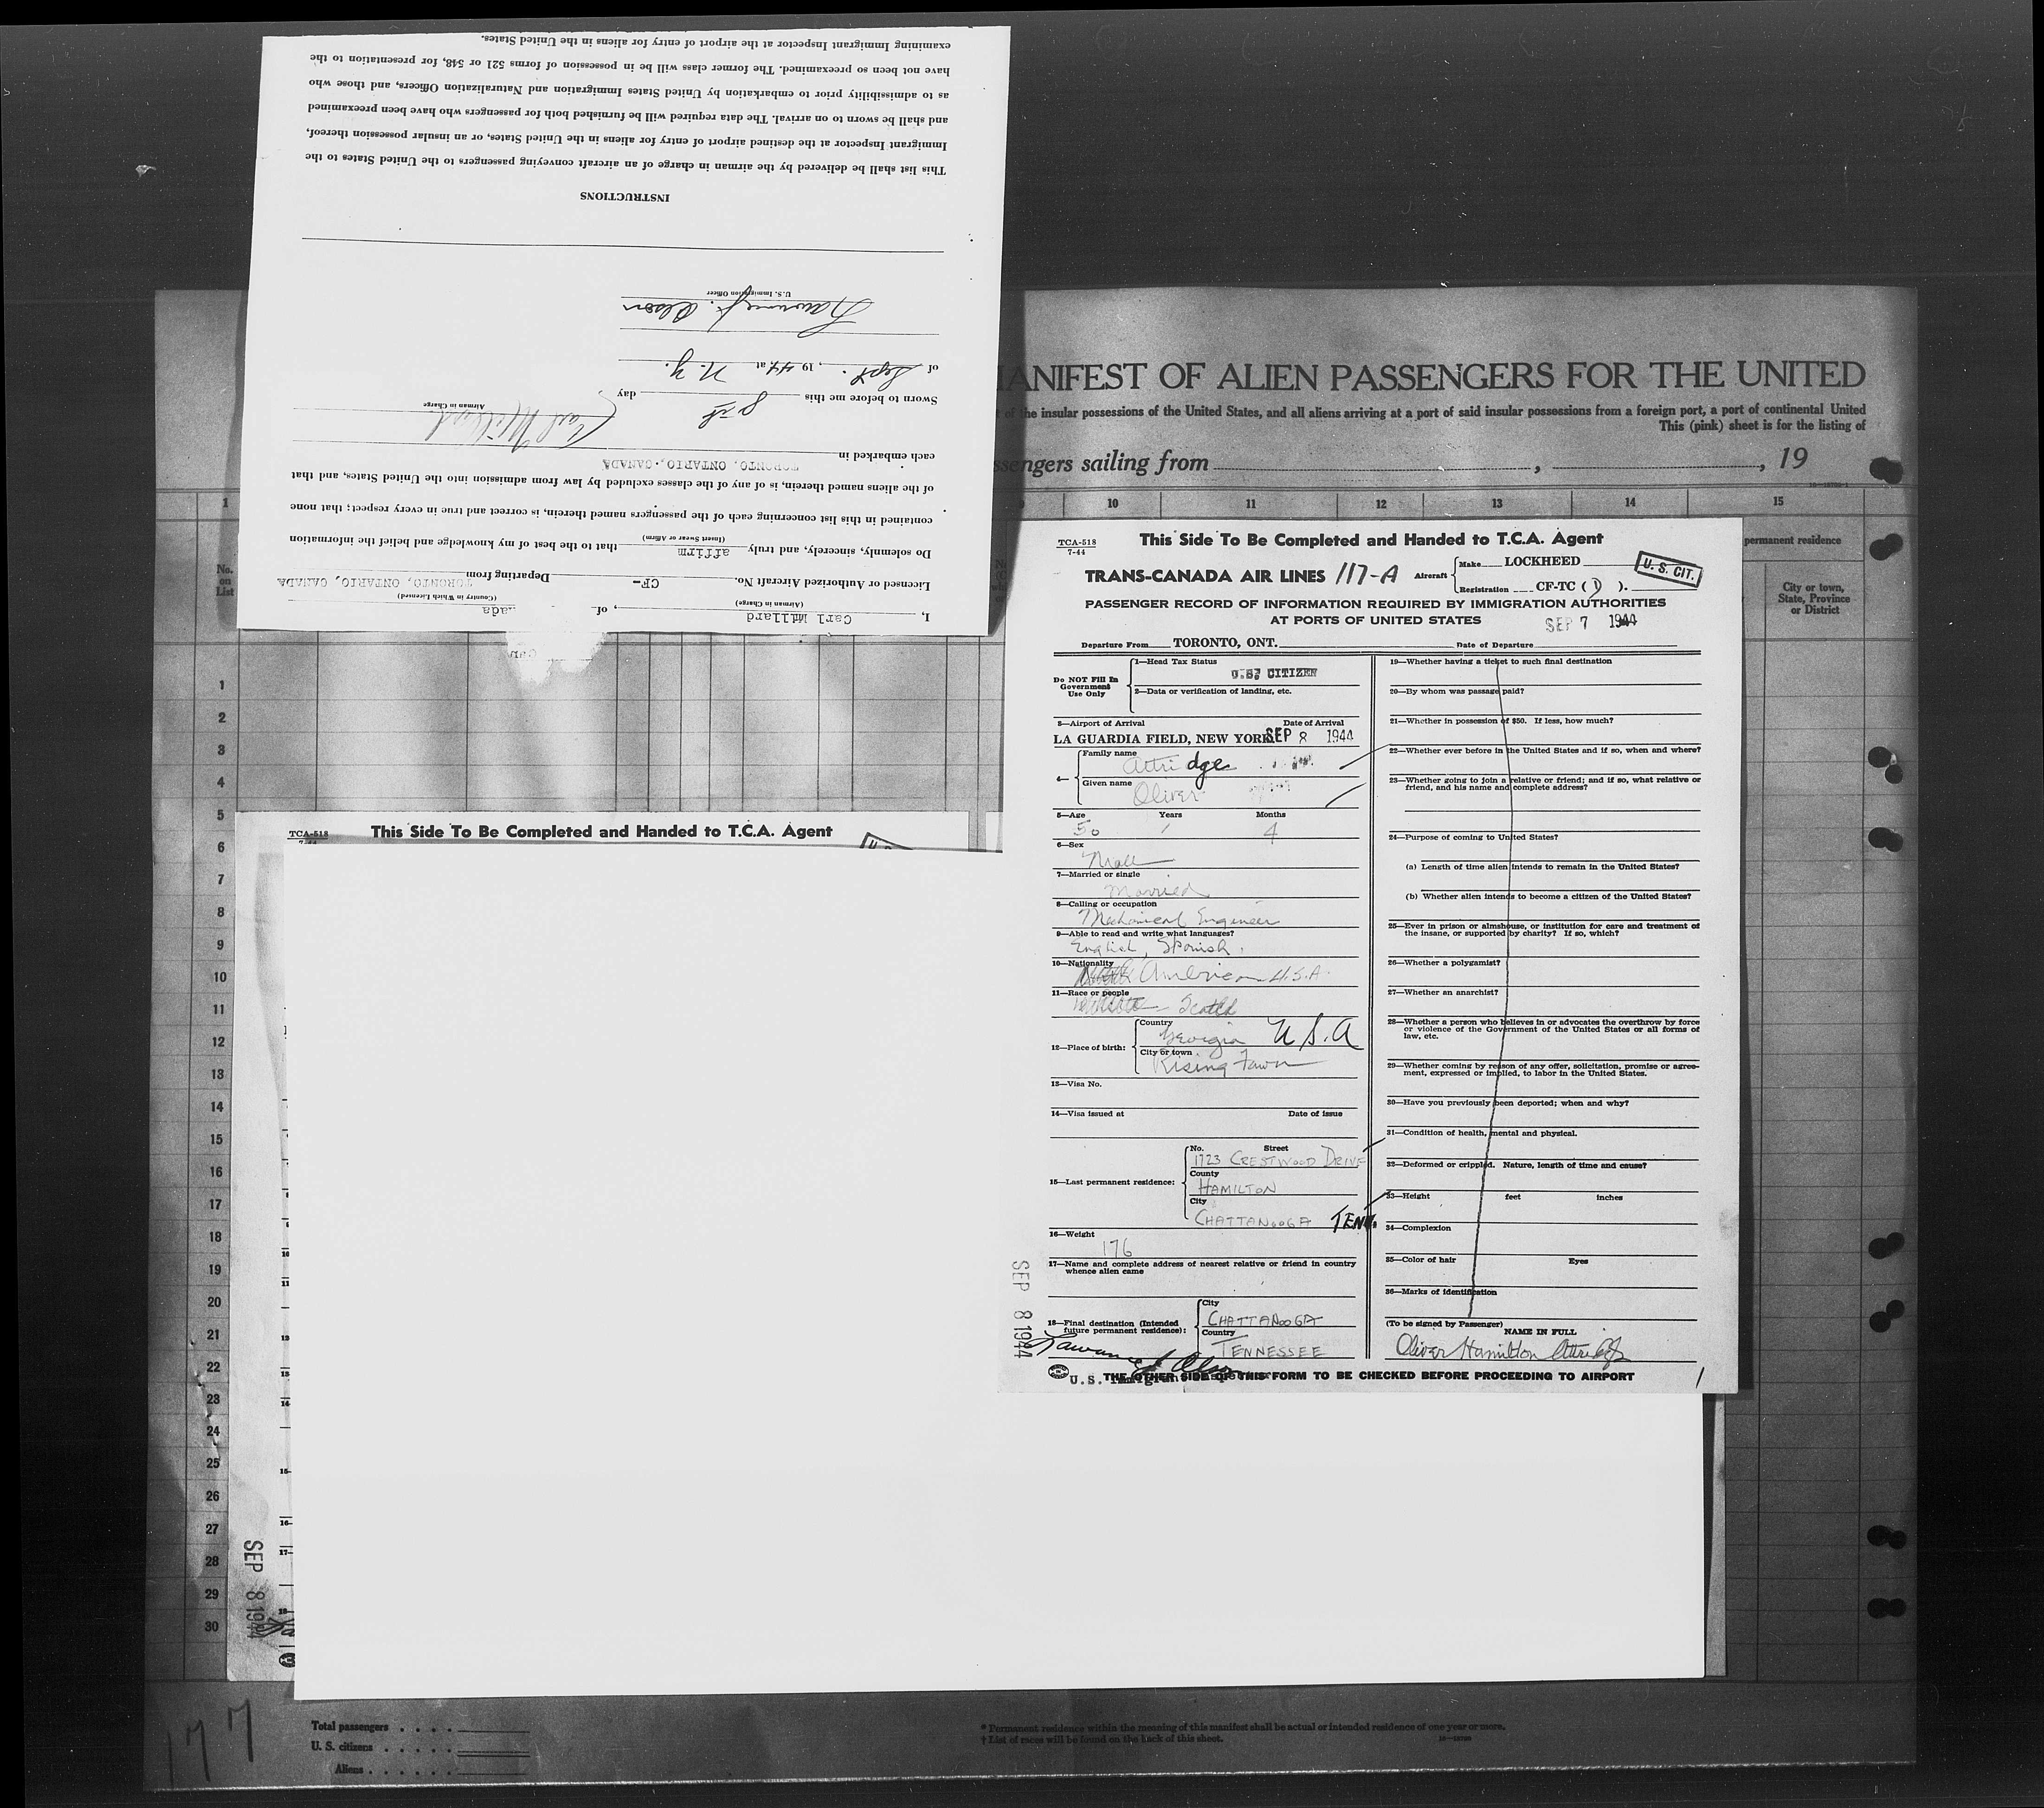 I, Carl Millard, of
(Airman in Charge) (Country in Which Licensed)
Licensed or Authorized Aircraft No. CF- Departing from TORONTO, ONTARIO, CANADA
Do solemnly, sincerely, and truly affirm that to the best of my knowledge and belief the information
(Insert Swear or Affirm)
contained in this list concerning each of the passengers named therein, is correct and true in every respect; that none
of the aliens named therein, is of any of the classes excluded by law from admission into the United States, and that
each embarked in TORONTO, ONTARIO, CANADA
Carl Millard
Airman in Charge
Sworn to before me this 8th day
of Sept., 1944, at N.Y.
Lawrence J. Olson
U.S. Immigration Officer
INSTRUCTIONS
This list shall be delivered by the airman in charge of an aircraft conveying passengers to the United States to the
Immigrant Inspector at the destined airport of entry for aliens in the United States, or an insular possession thereof,
and shall be sworn to on arrival. The data required will be furnished both for passengers who have been preexamined
as to admissibility prior to embarkation by United States Immigration and Naturalization Officers, and those who
have not been so preexamined. The former class will be in possession of forms 521 or 548, for presentation to the
examining Immigrant Inspector at the airport of entry for aliens in the United States.
MANIFEST OF ALIEN PASSENGERS FOR THE UNITED
of the insular possessions of the United States, and all aliens arriving at a port of said insular possessions from a foreign port, a port of continental United
This (pink) sheet is for the listing of
sengers sailing from , , 19
1 10 11 12 13 14 15
permanent residence
No. on List
City or town, State, Province or District
1
2
3
4
5
6
7
8
9
10
11
12
13
14
15
16
17
18
19
20
21
22
23
24
25
26
27
28
29
30
TCA-518
7-44
This Side To Be Completed and Handed to T.C.A. Agent
SEP 8 1944
TCA-518
7-44
This Side To Be Completed and Handed to T.C.A. Agent
TRANS-CANADA AIR LINES 117-A Aircraft Make LOCKHEED
Registration CF-TC ( D ).
U. S. CIT.
PASSENGER RECORD OF INFORMATION REQUIRED BY IMMIGRATION AUTHORITIES
AT PORTS OF UNITED STATES
SEP 7 1944
Departure From TORONTO, ONT. Date of Departure
Do NOT Fill In Government Use Only
1—Head Tax Status
U.S. CITIZEN
2—Data or verification of landing, etc.
3—Airport of Arrival Date of Arrival
LA GUARDIA FIELD, NEW YORK SEP 8 1944
4— Family name
Attridge
Given name
Oliver
5—Age Years Months
50 4
6—Sex
Male
7—Married or single
Married
8—Calling or occupation
Mechanical Engineer
9—Able to read and write what languages?
English, Spanish.
10—Nationality
American U.S.A.
11—Race or people
Scotch
12—Place of birth: Country
Georgia U.S.A
City or town
Rising Fawn
13—Visa No.
14—Visa issued at Date of issue
15—Last permanent residence:
No. Street
1723 CRESTWOOD DRIVE
County
HAMILTON
City
CHATTANOOGA TENN.
16—Weight
176
17—Name and complete address of nearest relative or friend in country
whence alien came
18—Final destination (Intended future permanent residence):
City
CHATTANOOGA
Country
TENNESSEE
Lawrence J. Olson
SEP 8 1944
19—Whether having a ticket to such final destination
20—By whom was passage paid?
21—Whether in possession of $50. If less, how much?
22—Whether ever before in the United States and if so, when and where?
23—Whether going to join a relative or friend; and if so, what relative or
friend, and his name and complete address?
24—Purpose of coming to United States?
(a) Length of time alien intends to remain in the United States?
(b) Whether alien intends to become a citizen of the United States?
25—Ever in prison or almshouse, or institution for care and treatment of
the insane, or supported by charity? If so, which?
26—Whether a polygamist?
27—Whether an anarchist?
28—Whether a person who believes in or advocates the overthrow by force
or violence of the Government of the United States or all forms of
law, etc.
29—Whether coming by reason of any offer, solicitation, promise or agree-
ment, expressed or implied, to labor in the United States.
30—Have you previously been deported; when and why?
31—Condition of health, mental and physical.
32—Deformed or crippled. Nature, length of time and cause?
33—Height feet inches
34—Complexion
35—Color of hair Eyes
36—Marks of identification
(To be signed by Passenger)
NAME IN FULL
Oliver Hamilton Attridge
U.S. Immigrant Inspector
THE OTHER SIDE OF THIS FORM TO BE CHECKED BEFORE PROCEEDING TO AIRPORT
177
Total passengers
U. S. citizens
Aliens
* Permanent residence within the meaning of this manifest shall be actual or intended residence of one year or more.
† List of races will be found on the back of this sheet.